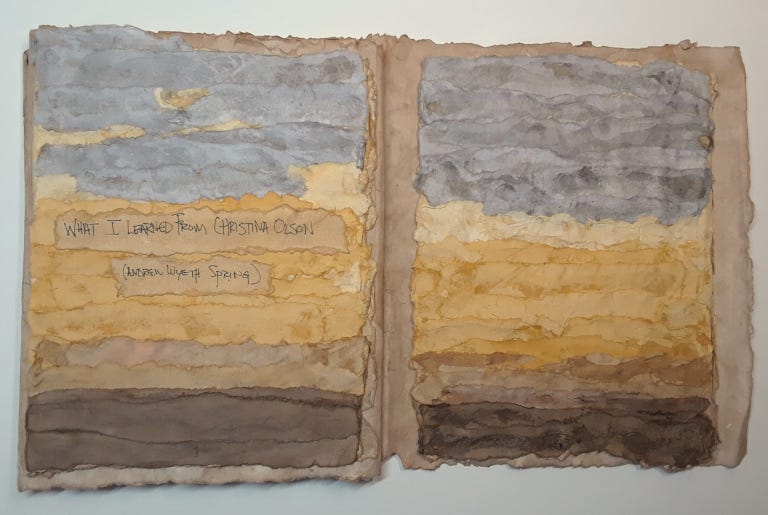 WHAT I LEARNED FROM CHRISTINA OLSON
(ANDREW WYETH SPRING)